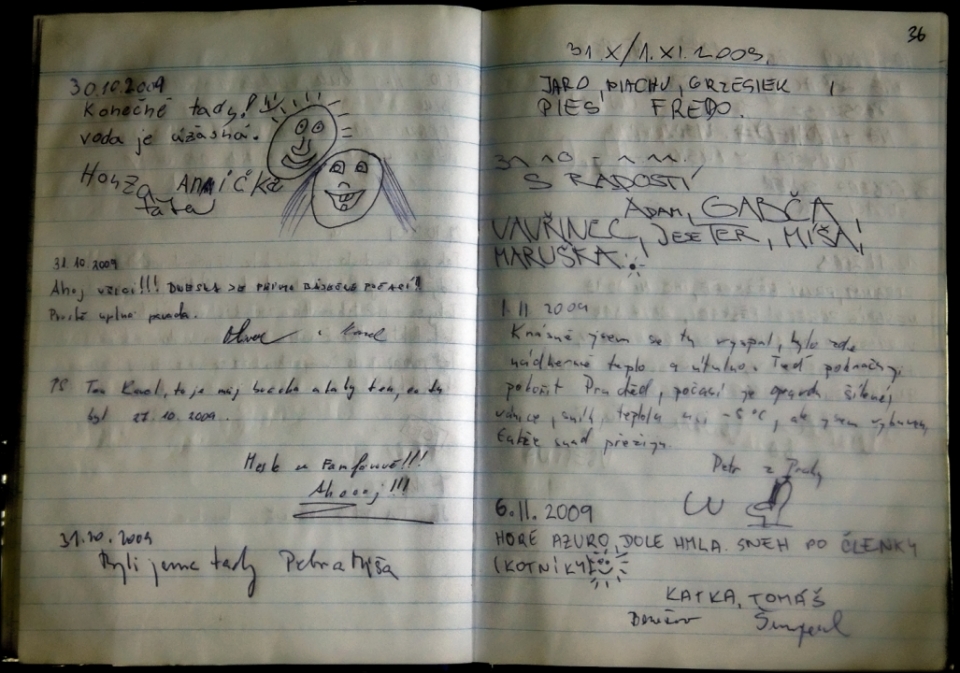 30.10.2009
Konečně tady!
voda je úžasná.
Honza Anička
táta
31.10.2009
Ahoj všici!!! DNESKA JE PŘÍMO BÁJEČNÉ POČASÍ!!
Prostě úplná parada.
i Karel
PS Ten Karel, to je můj a
byl 27.10.2009..
Hosk a Fanfánové!!!
Ahoooj!!!
31.10.2009
Byli jsme tady Petra Míša
36
31.X/1.XI.2009.
JARO, PIACHU, GRZESIEK I
PIES FREDO.
31 10 - 1 11.
S RADOSTÍ
ADAM, GABČA,
VAVŘINEC, JESETER, MÍŠA,
MARUŠKA
1.11 2009
Krásně jsem se tu vyspal, bylo zde
nádherně teplo a útulno. Teď
pokořit Praděd, počasí je opravdu šílené,
vánice, sníh, teplota -5°C, ale jsem vybaven,
takže snad přežiju.
Petr z Prahy
6.11.2009
HORE AZURO, DOLE HMLA. SNEH PO ČLENKY
(KOTNÍKY)
KATKA, TOMÁŠ